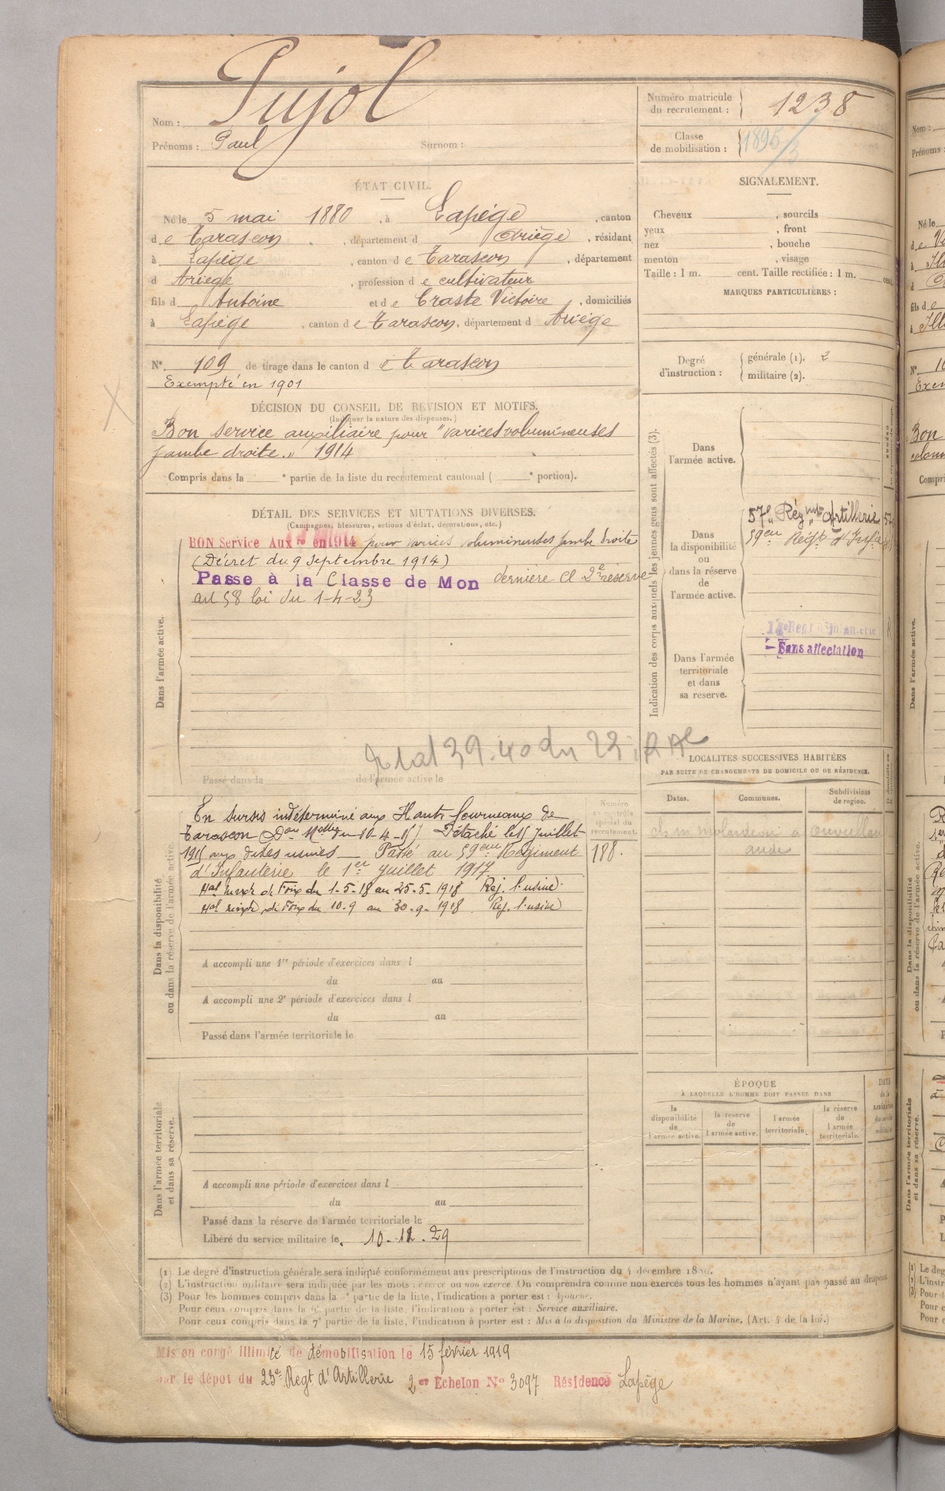 Nom : Pujol
Prénoms : Paul Surnom :
Numéro matricule du recrutement : 1238
Classe de mobilisation : 1895/3
ÉTAT CIVIL.
Né le 5 mai 1880, à Lapége, canton
de Tarascon, département d Ariège, résidant
à Lapège, canton de Tarascon, département
d Ariège, profession de cultivateur
fils d Antoine et de Craste Victoire, domiciliés
à Lapège, canton de Tarascon, département d Ariège
N° 109 de tirage dans le canton de Tarascon
Exempté en 1901
DÉCISION DU CONSEIL DE REVISION ET MOTIFS.
(Indiquer la nature des dispenses.)
Bon service auxiliaire pour "varices volumineuses
jambe droite." 1914
Compris dans la ° partie de la liste du recrutement cantonal ( ° portion).
SIGNALEMENT.
Cheveux , sourcils
yeux , front
nez , bouche
menton , visage
Taille : 1 m. cent. Taille rectifiée : 1 m. cent.
MARQUES PARTICULIÈRES :
Degré d'instruction : générale (1). 2
militaire (2).
DÉTAIL DES SERVICES ET MUTATIONS DIVERSES.
(Campagnes, blessures, actions d'éclat, décorations, etc.)
BON Service Aux re en 1914 pour varices volumineuses jambe droite
(Décret du 9 septembre 1914)
Passe à la Classe de Mon dernière Cl 2e réserve
art 58 loi du 1-4-23
Dans l'armée active.
Passé dans la de l'armée active le
39.40 du 23
Indication des corps auxquels les jeunes gens sont affectés (3).
Dans l'armée active.
Dans la disponibilité ou dans la réserve de l'armée active.
57e Régmt Artillerie
59eme Regt d'Infie
Dans l'armée territoriale et dans sa réserve.
Sans affectation
LOCALITÉS SUCCESSIVES HABITÉES
PAR SUITE DE CHANGEMENTS DE DOMICILE OU DE RÉSIDENCE.
Dates. Communes. Subdivisions de region.
Dans la disponibilité ou dans la réserve de l'armée active.
En sursis indéterminé aux Hauts fourneaux de
Tarascon 10-4-15) Détaché le 15 juillet
1915 aux dites usines — Passé au 59eme Régiment
d'Infanterie le 1er juillet 1917
de Foix du 1-5-18 au 25-5-1918 Rej. l'usine)
de Foix du 10-9 au 30-9-1918 Rej. l'usine)
Numéro au contrôle spécial du recrutement.
188.
A accompli une 1re période d'exercices dans l
du au
A accompli une 2e période d'exercices dans l
du au
Passé dans l'armée territoriale le
ÉPOQUE
À LAQUELLE L'HOMME DOIT PASSER DANS
la disponibilité de l'armée active.
la réserve de l'armée active.
l'armée territoriale.
la réserve de l'armée territoriale.
Dans l'armée territoriale et dans sa réserve.
A accompli une période d'exercices dans l
du au
Passé dans la réserve de l'armée territoriale le
Libéré du service militaire le. 10-12-29
(1) Le degré d'instruction générale sera indiqué conformément aux prescriptions de l'instruction du 4 décembre
(2) L'instruction militaire sera indiquée par les mots : exercé ou non exercé. On comprendra comme non exercés tous les hommes n'ayant pas passé au drapeau.
(3) Pour les hommes compris dans la partie de la liste, l'indication à porter est : Ajourné.
Pour ceux compris dans la 6e partie de la liste, l'indication à porter est : Service auxiliaire.
Pour ceux compris dans la 7e partie de la liste, l'indication à porter est : Mis à la disposition du Ministre de la Marine. (Art. 4 de la loi.)
Mis en congé illimité de démobilisation le 15 février 1919
par le dépôt du 23e Regt d'Artillerie 2me Echelon N° 3097 Résidence Lapège